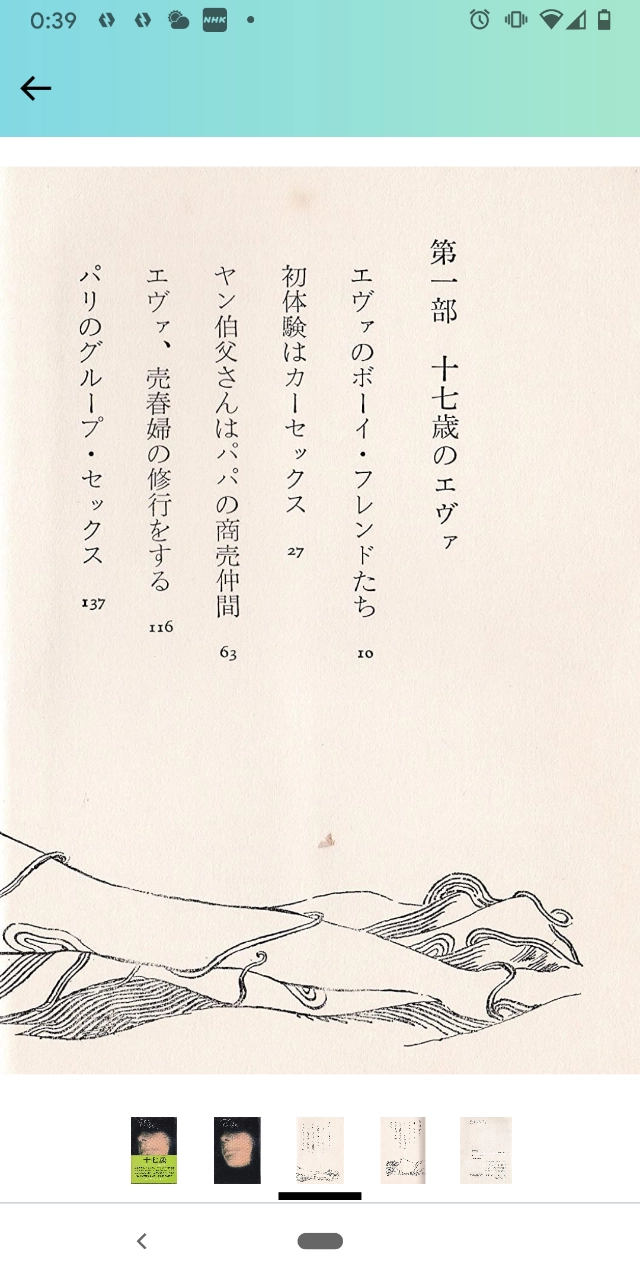 0:39
NHK
第一部 十七歳のエヴァ
エヴァのボーイ・フレンドたち 10
初体験はカーセックス 27
ヤン伯父さんはパパの商売仲間 63
エヴァ、売春婦の修行をする 116
パリのグループ・セックス 137
十七歳